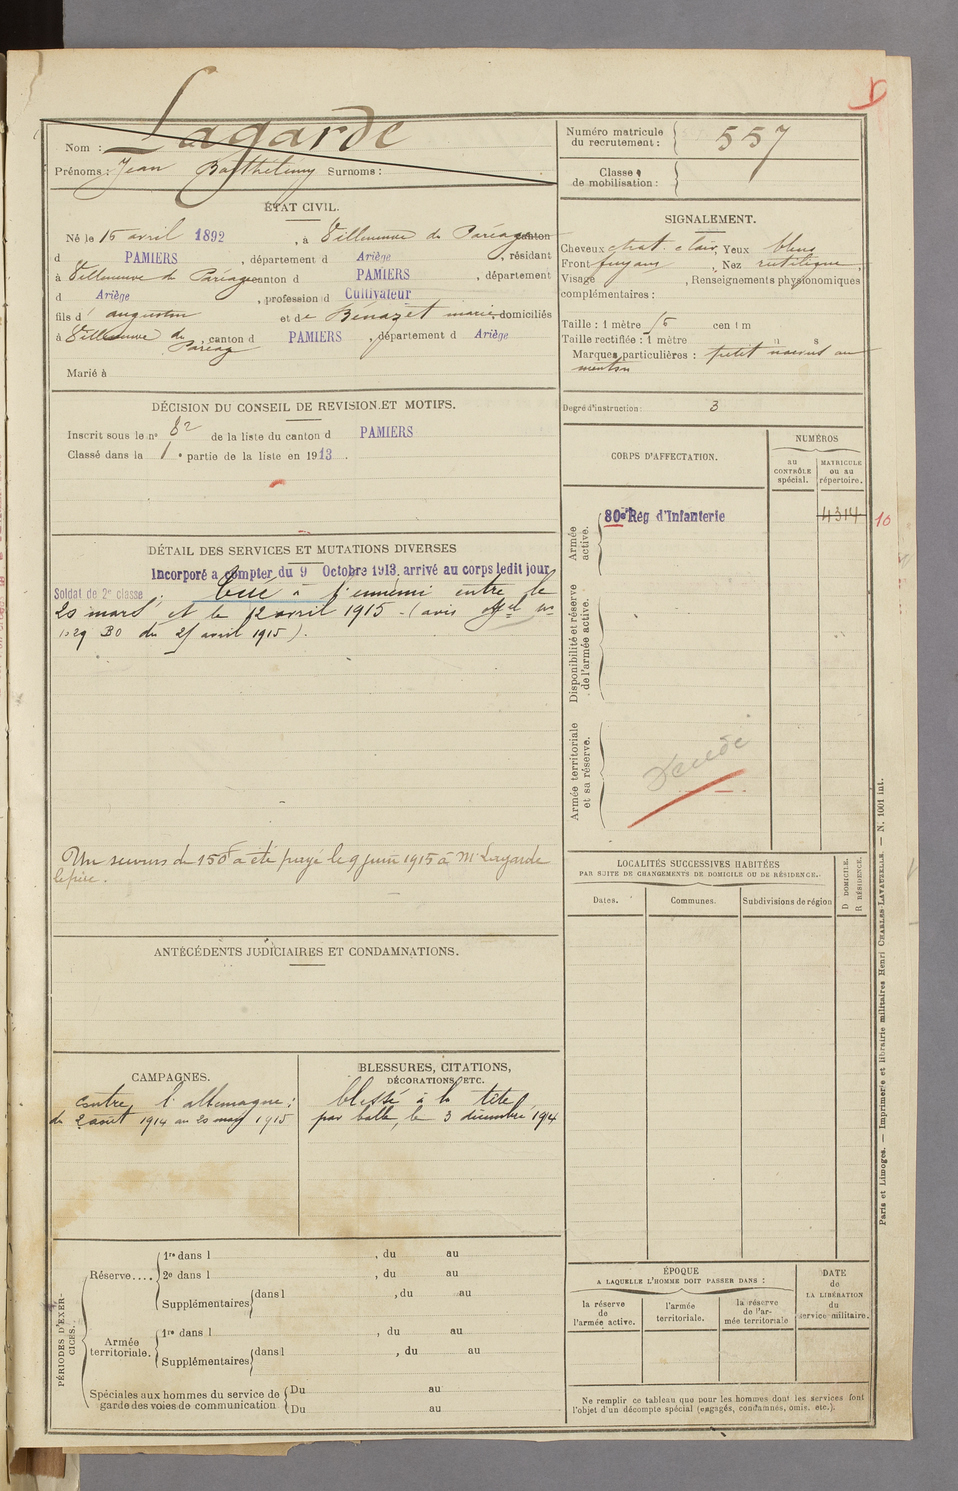 Nom : Lagarde
Prénoms : Jean Barthélémy Surnoms :
Numéro matricule du recrutement : 557
Classe de mobilisation :
ÉTAT CIVIL.
Né le 15 avril 1892, à Villeneuve du Paréage canton
d PAMIERS, département d Ariège, résidant
à Villeneuve du Paréage canton d PAMIERS, département
d Ariège, profession d Cultivateur
fils d' augustin et de Bénazet marie, domiciliés
à Villeneuve du Paréage, canton d PAMIERS, département d Ariège
Marié à
SIGNALEMENT.
Cheveux chat. clair, Yeux bleus
Front fuyant, Nez rectiligne,
Visage, Renseignements physionomiques
complémentaires :
Taille : 1 mètre 56 centim
Taille rectifiée : 1 mètre
Marques particulières : petit naevus au
menton
Degré d'instruction : 3
DÉCISION DU CONSEIL DE REVISION ET MOTIFS.
Inscrit sous le nº 82 de la liste du canton d PAMIERS
Classé dans la 1e partie de la liste en 1913.
CORPS D'AFFECTATION.
NUMÉROS
au CONTRÔLE spécial.
MATRICULE ou au répertoire.
Armée active.
80e Rég d'Infanterie
4314
10
Disponibilité et réserve de l'armée active.
Armée territoriale et sa réserve.
DÉTAIL DES SERVICES ET MUTATIONS DIVERSES
Incorporé a compter du 9 Octobre 1913, arrivé au corps ledit jour
Soldat de 2e classe. Tué à l'ennemi entre le
20 mars et le 12 avril 1915 - (avis offel nº
1029 BO du 25 avril 1915).
Un secours de 150f a été payé le 9 juin 1915 à Mr Lagarde
le père.
ANTÉCÉDENTS JUDICIAIRES ET CONDAMNATIONS.
LOCALITÉS SUCCESSIVES HABITÉES
PAR SUITE DE CHANGEMENTS DE DOMICILE OU DE RÉSIDENCE.
Dates.
Communes.
Subdivisions de région
D DOMICILE.
R RÉSIDENCE.
CAMPAGNES.
Contre l'allemagne :
du 2 août 1914 au 20 mars 1915
BLESSURES, CITATIONS,
DÉCORATIONS, ETC.
blessé à la tête
par balle, le 3 décembre 1914
PÉRIODES D'EXERCICES.
Réserve....
1re dans l, du au
2e dans l, du au
Supplémentaires dans l, du au
Armée territoriale.
1re dans l, du au
Supplémentaires dans l, du au
Spéciales aux hommes du service de garde des voies de communication
Du au
Du au
ÉPOQUE
A LAQUELLE L'HOMME DOIT PASSER DANS :
la réserve de l'armée active.
l'armée territoriale.
la réserve de l'armée territoriale
DATE de LA LIBÉRATION du service militaire.
Ne remplir ce tableau que pour les hommes dont les services font
l'objet d'un décompte spécial (engagés, condamnés, omis, etc.).
Paris et Limoges. — Imprimerie et librairie militaires Henri CHARLES-LAVAUZELLE. — N. 1001 int.